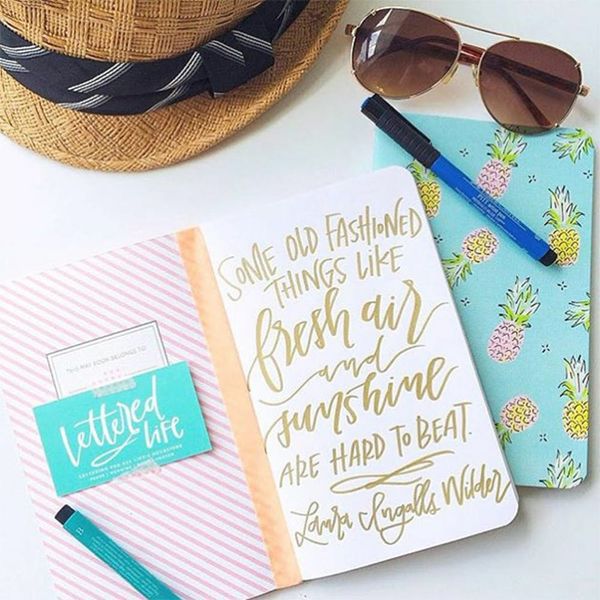 THIS MAY BOOK BELONGS TO:
Lettered
life
SOME OLD FASHIONED
THINGS LIKE
fresh air
and
sunshine
ARE HARD TO BEAT.
Laura Ingalls Wilder